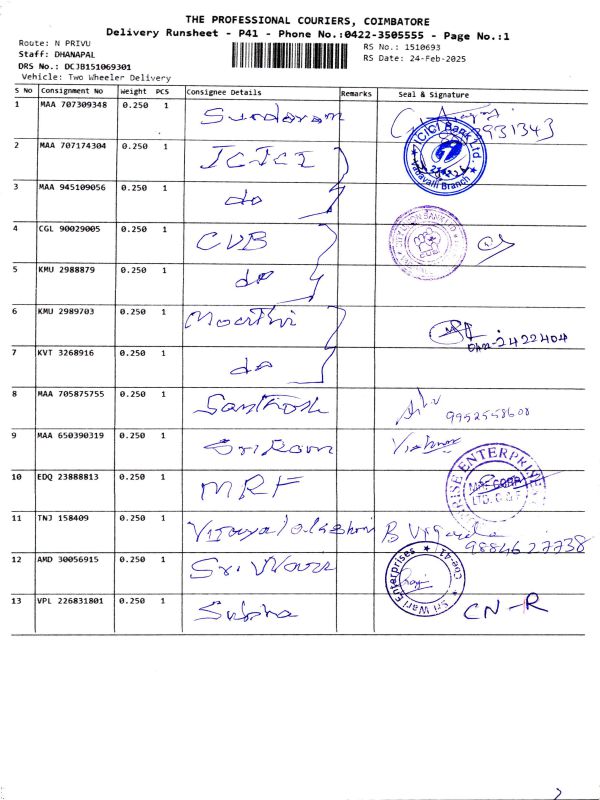 THE PROFESSIONAL COURIERS, COIMBATORE
Delivery Runsheet - P41 - Phone No.:0422-3505555 - Page No.:1
Route: N PRIVU
Staff: DHANAPAL
DRS No.: DCJB151069301
Vehicle: Two Wheeler Delivery
RS No.: 1510693
RS Date: 24-Feb-2025
S No Consignment No Weight PCS Consignee Details Remarks Seal & Signature
1 MAA 707309348 0.250 1 Sundaram
2 MAA 707174304 0.250 1 ICICI ICICI Bank Ltd. Vadavalli Branch
3 MAA 945109056 0.250 1 do
4 CGL 90029005 0.250 1 CUB
5 KMU 2988879 0.250 1 do
6 KMU 2989703 0.250 1 Moorthi 2422404
7 KVT 3268916 0.250 1 do
8 MAA 705875755 0.250 1 Santhosh 9952558608
9 MAA 650390319 0.250 1 Sri Ram
10 EDQ 23888813 0.250 1 MRF MRF CORP LTD. C & F
11 TNJ 158409 0.250 1 9884627738
12 AMD 30056915 0.250 1 Sri Wari Sri Wari Enterprises Cbe-41
13 VPL 226831801 0.250 1 Subha CN-R